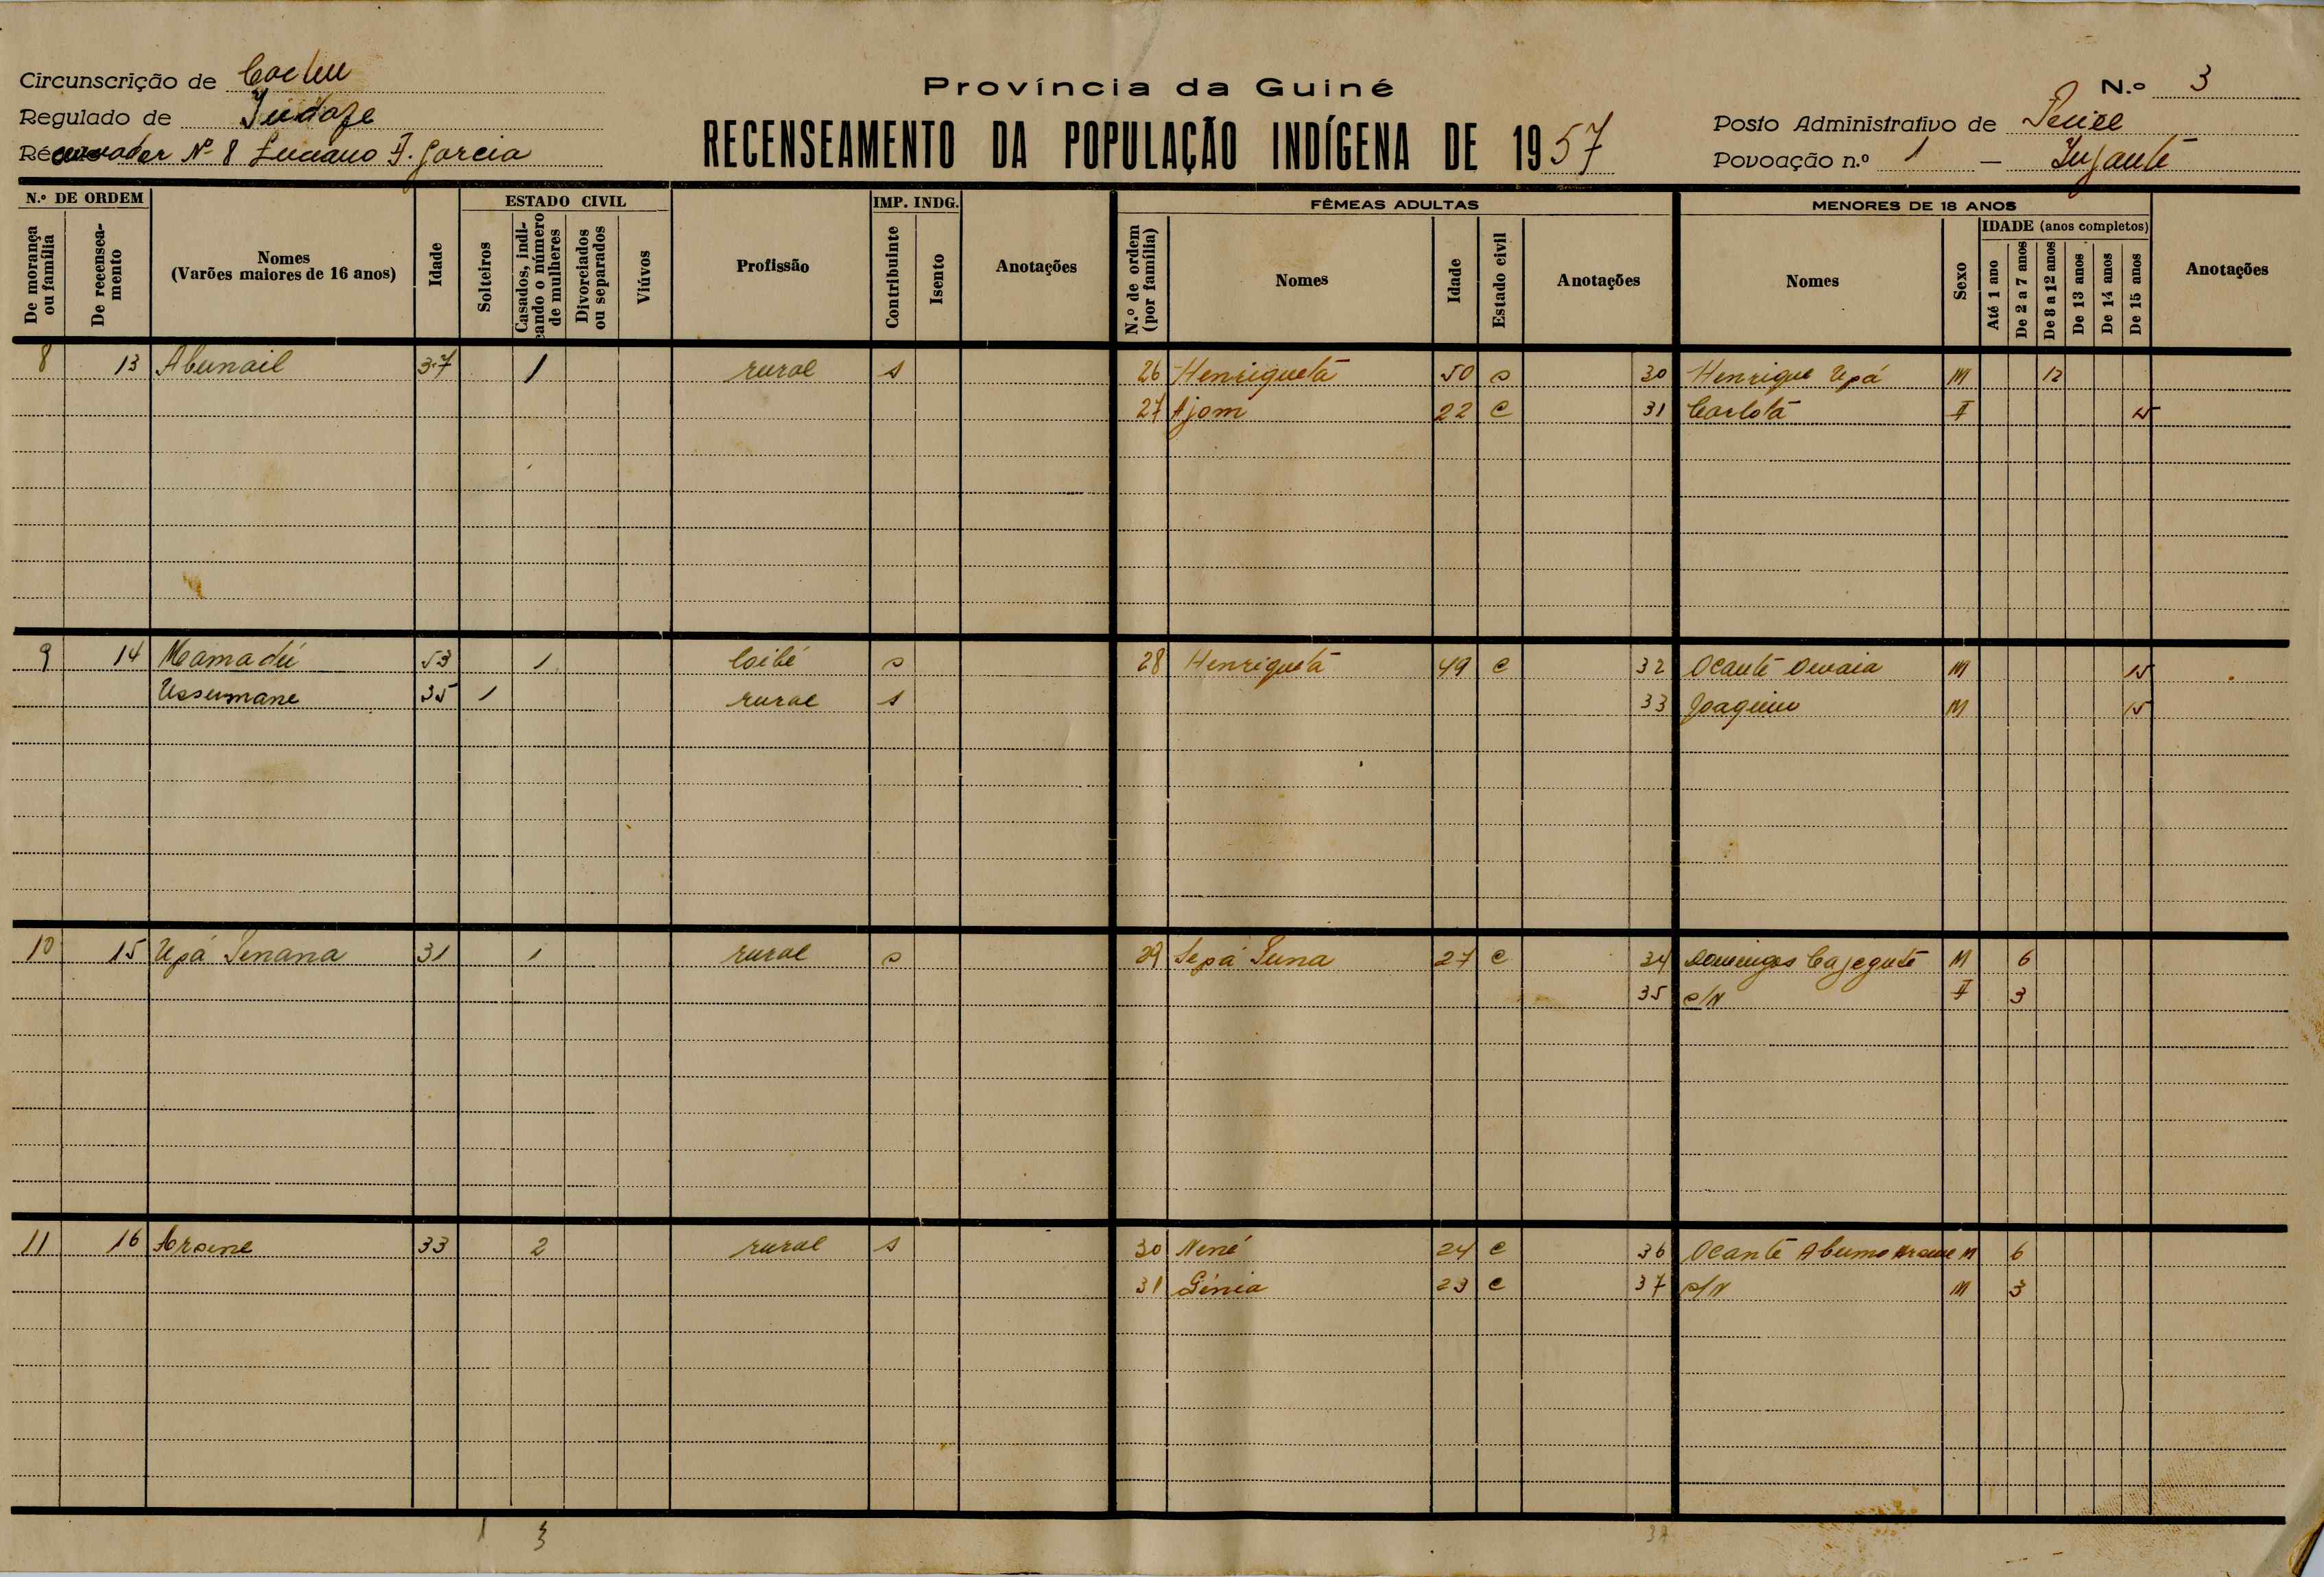 Circunscrição de Cacheu
Província da Guiné
N.º 3
Regulado de
RECENSEAMENTO DA POPULAÇÃO INDÍGENA DE 1957
Posto Administrativo de
Recenseador Nº 8 Luciano F. Garcia
Povoação n.º 1 —
N.º DE ORDEM
De morança ou família
De recenseamento
Nomes
(Varões maiores de 16 anos)
Idade
ESTADO CIVIL
Solteiros
Casados, indicando o número de mulheres
Divorciados ou separados
Viúvos
Profissão
IMP. INDG.
Contribuinte
Isento
Anotações
FÊMEAS ADULTAS
N.º de ordem (por família)
Nomes
Idade
Estado civil
Anotações
MENORES DE 18 ANOS
Nomes
Sexo
IDADE (anos completos)
Até 1 ano
De 2 a 7 anos
De 8 a 12 anos
De 13 anos
De 14 anos
De 15 anos
Anotações
8 13 Abunail 37 1 rural s 26 Henriqueta 50 s 30 Henrique Upá M 12
27 Ajom 22 c 31 Carlota F 15
9 14 Mamadú 53 1 s 28 Henriqueta 49 c 32 Ocante M 15
Ussumane 35 1 rural s 33 Joaquim M 15
10 15 Upá Senana 31 1 rural s 29 27 c 34 Domingos M 6
35 s/N F 3
11 16 Arsene 33 2 rural s 30 Nené 24 c 36 Ocante M 6
31 Génia 23 c 37 s/N M 3
1 3 37